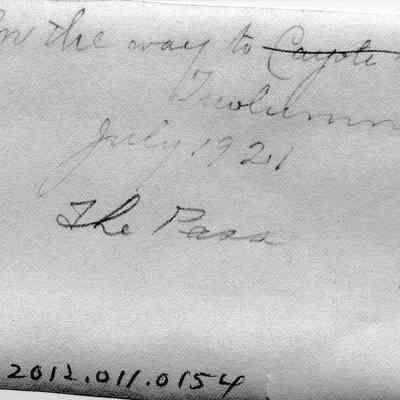 On the way to Cayote
Tuolumn
July 1921
The Pass
2012.011.0154